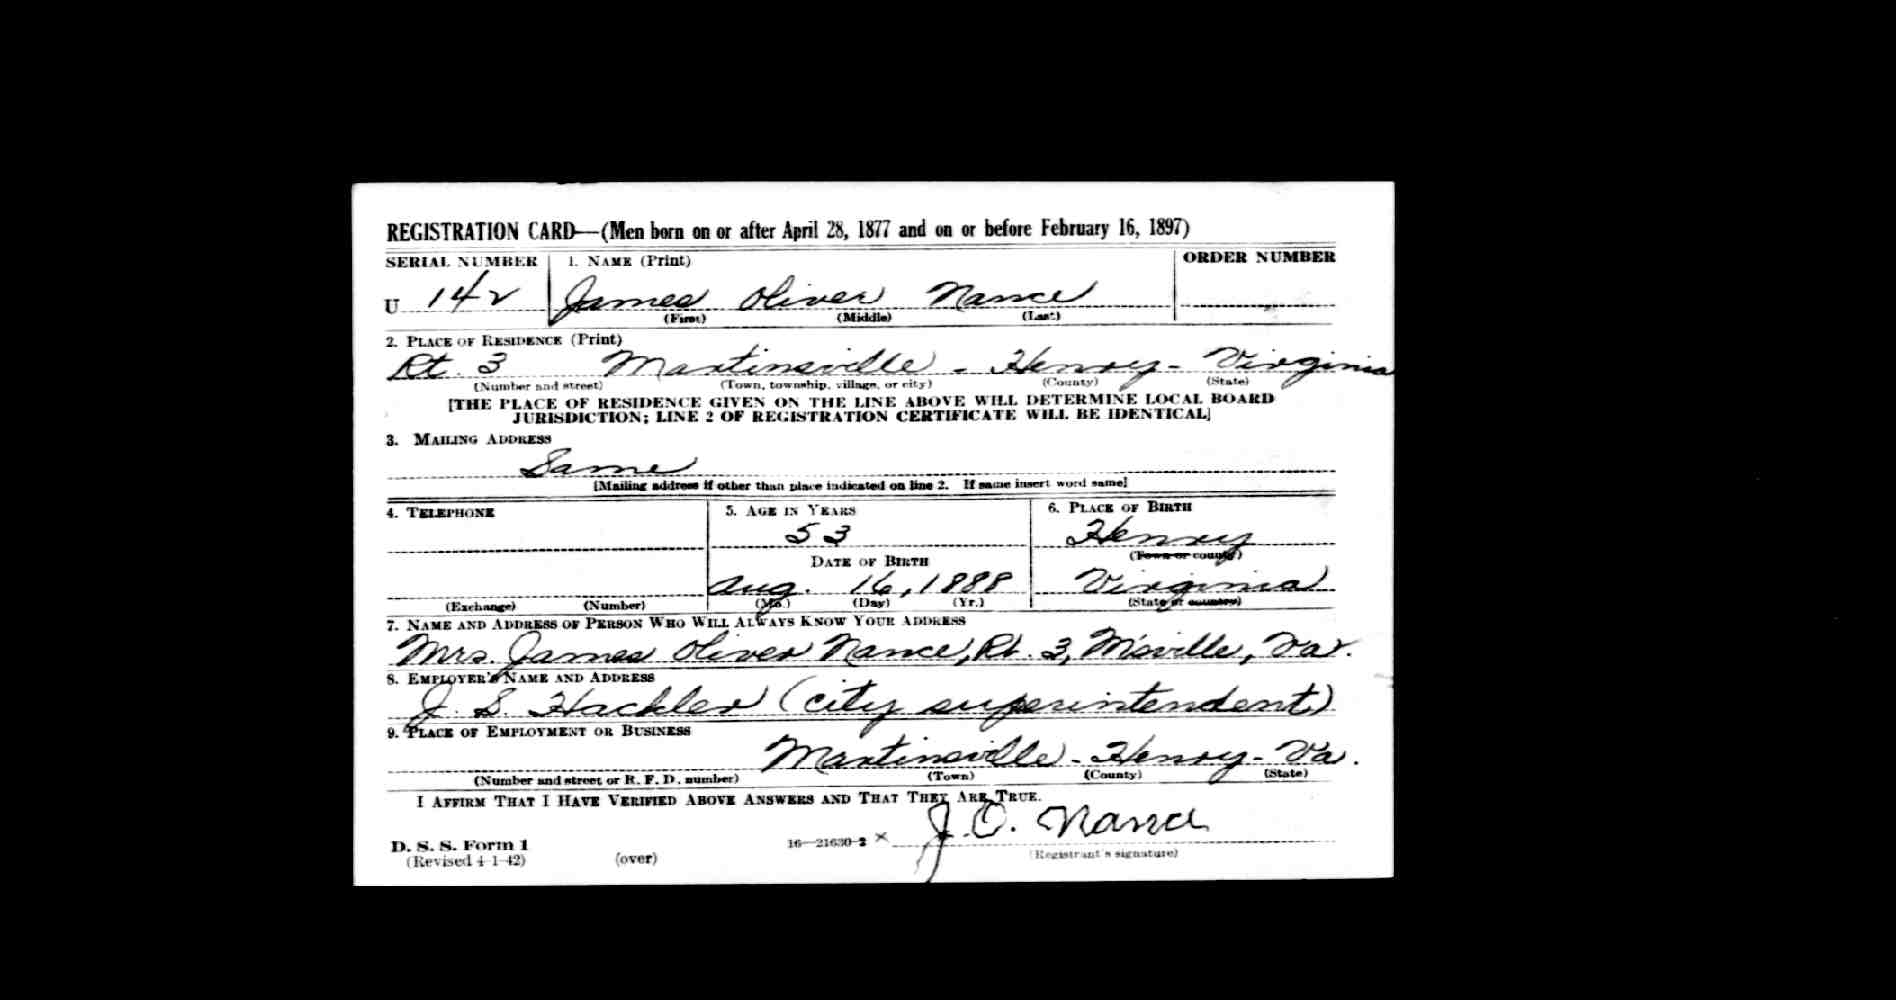 REGISTRATION CARD—(Men born on or after April 28, 1877 and on or before February 16, 1897)
SERIAL NUMBER 1. NAME (Print) ORDER NUMBER
U 142 James Oliver Nance
(First) (Middle) (Last)
2. PLACE OF RESIDENCE (Print)
Rt. 3 Martinsville - Henry - Virginia
(Number and street) (Town, township, village, or city) (County) (State)
[THE PLACE OF RESIDENCE GIVEN ON THE LINE ABOVE WILL DETERMINE LOCAL BOARD
JURISDICTION; LINE 2 OF REGISTRATION CERTIFICATE WILL BE IDENTICAL]
3. MAILING ADDRESS
Same
[Mailing address if other than place indicated on line 2. If same insert word same]
4. TELEPHONE 5. AGE IN YEARS 6. PLACE OF BIRTH
53 Henry
(Town or county)
DATE OF BIRTH
Aug. 16, 1888 Virginia
(Exchange) (Number) (Mo.) (Day) (Yr.) (State or country)
7. NAME AND ADDRESS OF PERSON WHO WILL ALWAYS KNOW YOUR ADDRESS
Mrs. James Oliver Nance, Rt. 3, M'sville, Va.
8. EMPLOYER'S NAME AND ADDRESS
J. S. Hackler (city superintendent)
9. PLACE OF EMPLOYMENT OR BUSINESS
Martinsville - Henry - Va.
(Number and street or R. F. D. number) (Town) (County) (State)
I AFFIRM THAT I HAVE VERIFIED ABOVE ANSWERS AND THAT THEY ARE TRUE.
J. O. Nance
D. S. S. Form 1 16—21630-2 x
(Revised 4-1-42) (over) (Registrant's signature)